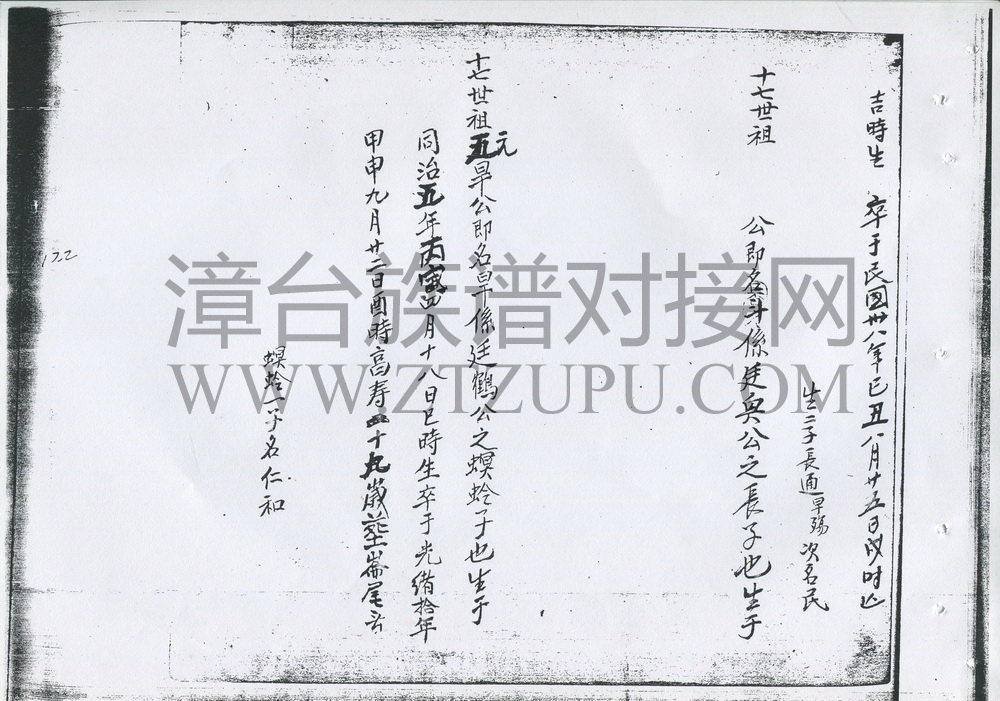 吉時生 卒于民国卅八年己丑八月廿五日戌时
生二子長通早殤次名民
十七世祖 公即名斗係廷奐公之長子也生于
十七世祖元五旱公即名旱係廷鶴公之螟蛉子也生于
同治五年丙寅四月十八日巳時生卒于光緒拾年
甲申九月廿二日酉時高寿十九歲塟崙尾
螟蛉一子名仁和
122
漳台族谱对接网
WWW.ZTZUPU.COM